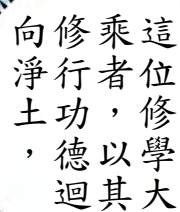 這位修學大
乘者，以其
修行功德迴
向淨土，